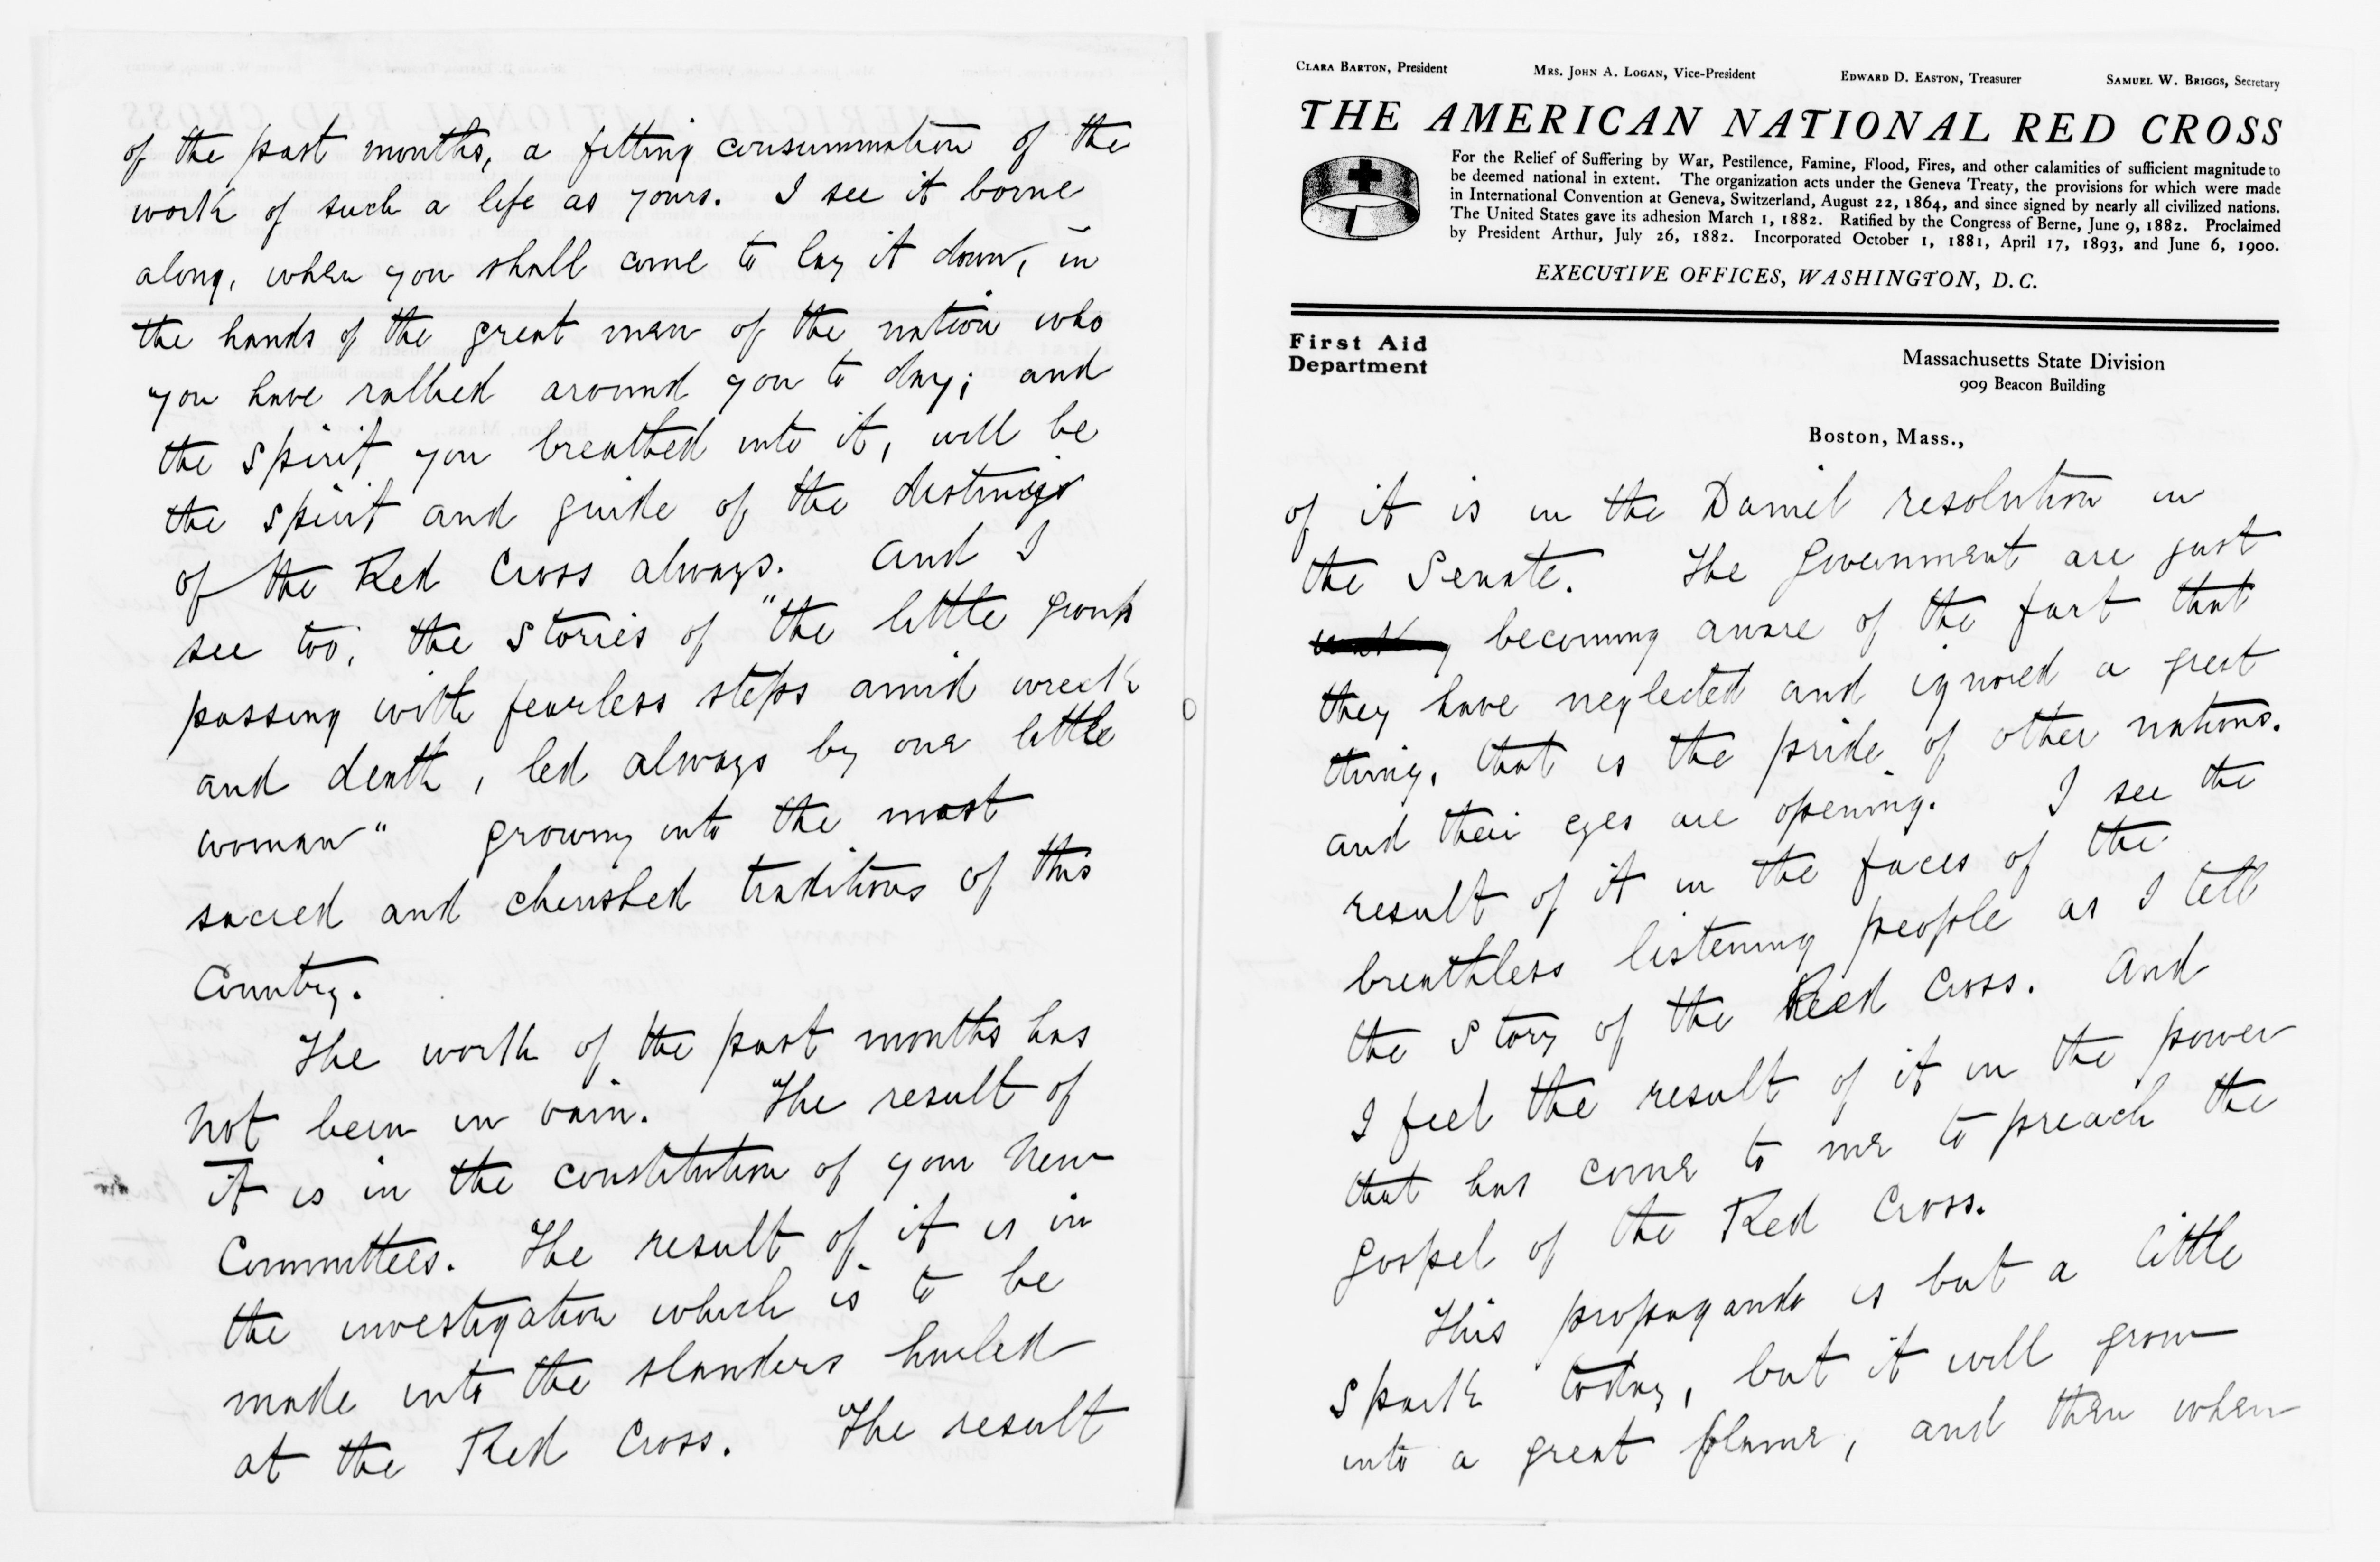 of the past months, a fitting consummation of the
work of such a life as yours. I see it borne
along, when you shall come to lay it down, in
the hands of the great men of the nation who
you have rallied around you to day; and
the spirit you breathed into it, will be
the spirit and guide of the
of the Red Cross always. And I
see too, the stories of "the little group
passing with fearless steps amid wreck
and death, led always by one little
woman" growing into the most
sacred and cherished traditions of this
Country.
The work of the past months has
not been in vain. The result of
it is in the constitution of your New
Committees. The result of it is in
the investigation which is to be
made into the slanders hurled
at the Red Cross. The result
CLARA BARTON, President MRS. JOHN A. LOGAN, Vice-President EDWARD D. EASTON, Treasurer SAMUEL W. BRIGGS, Secretary
THE AMERICAN NATIONAL RED CROSS
For the Relief of Suffering by War, Pestilence, Famine, Flood, Fires, and other calamities of sufficient magnitude to
be deemed national in extent. The organization acts under the Geneva Treaty, the provisions for which were made
in International Convention at Geneva, Switzerland, August 22, 1864, and since signed by nearly all civilized nations.
The United States gave its adhesion March 1, 1882. Ratified by the Congress of Berne, June 9, 1882. Proclaimed
by President Arthur, July 26, 1882. Incorporated October 1, 1881, April 17, 1893, and June 6, 1900.
EXECUTIVE OFFICES, WASHINGTON, D.C.
First Aid
Department
Massachusetts State Division
909 Beacon Building
Boston, Mass.,
of it is in the Daniel resolution in
the Senate. The Government are just
becoming aware of the fact that
they have neglected and ignored a great
thing, that is the pride of other nations.
and their eyes are opening. I see the
result of it in the faces of the
breathless listening people as I tell
the story of the Red Cross. And
I feel the result of it in the power
that has come to me to preach the
gospel of the Red Cross.
This propaganda is but a little
spark today, but it will grow
into a great flame, and then when